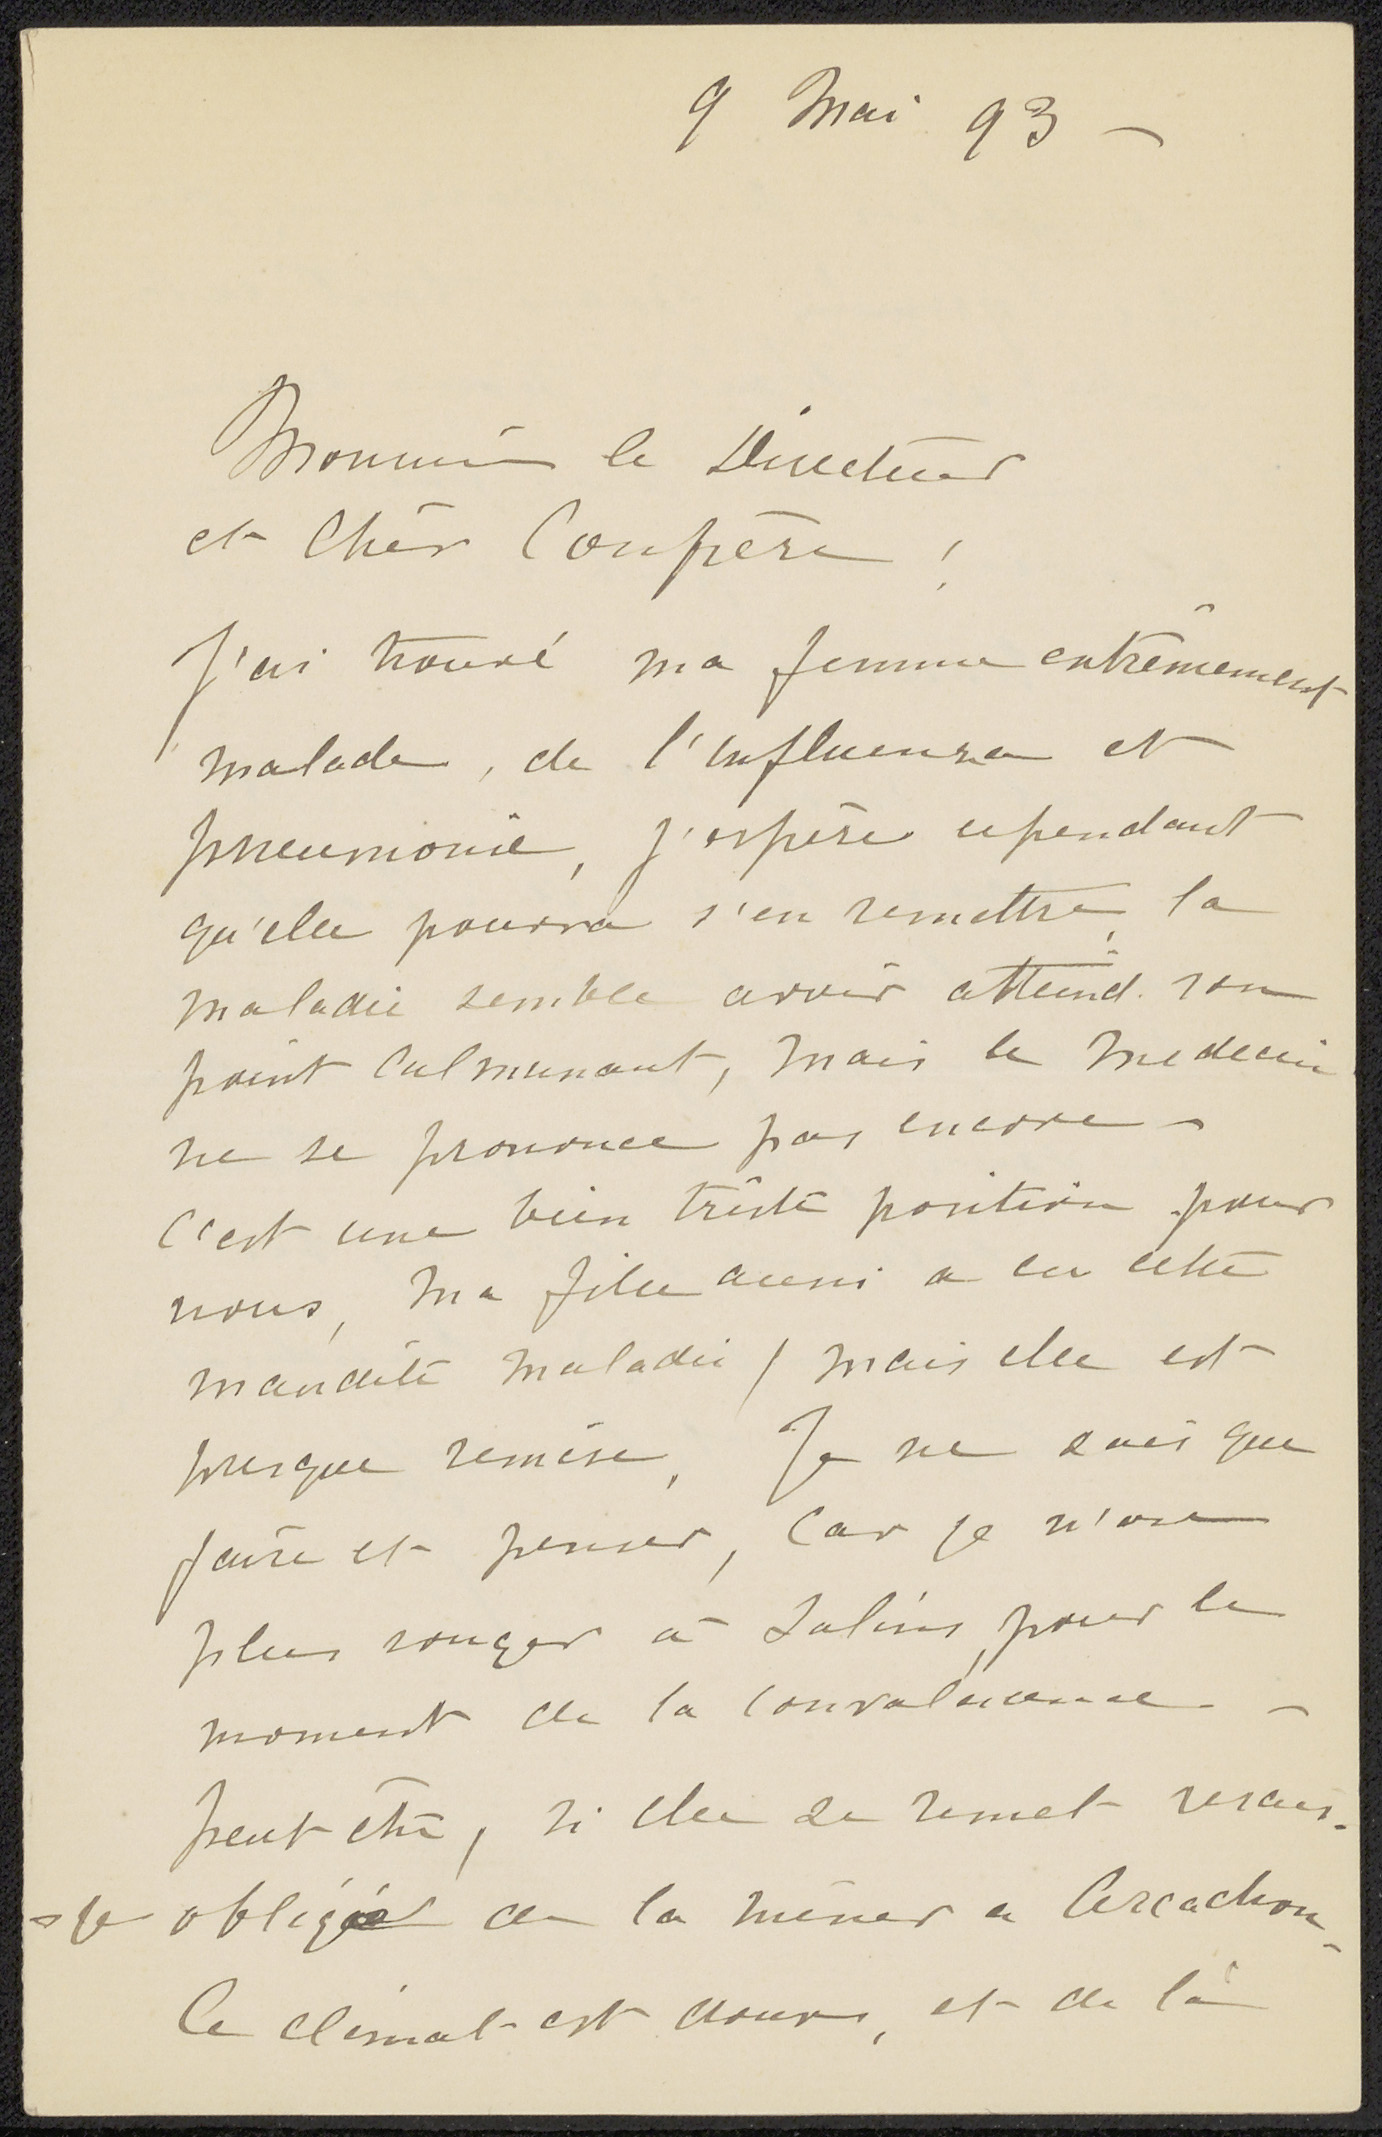 9 Mai 93 –
Monsieur le Directeur
et Cher Confrère !
J'ai trouvé ma femme extrêmement
malade, de l'influenza et
pneumonie, j'espère cependant
qu'elle pourra s'en remettre, la
maladie semble avoir atteind son
point culminant, mais le medecin
ne se prononce pas encore –
C'est une bien triste position pour
nous, ma fille aussi a eu cette
maudite maladie, mais elle est
presque remise, Je ne sais que
faire et penser, car je n'ose
plus songer à Salins, pour le
moment de la convalescence. –
Peut être, si elle se remet serais-
-je obligé de la mener a Arcachon –
Le climat est doux, et de là